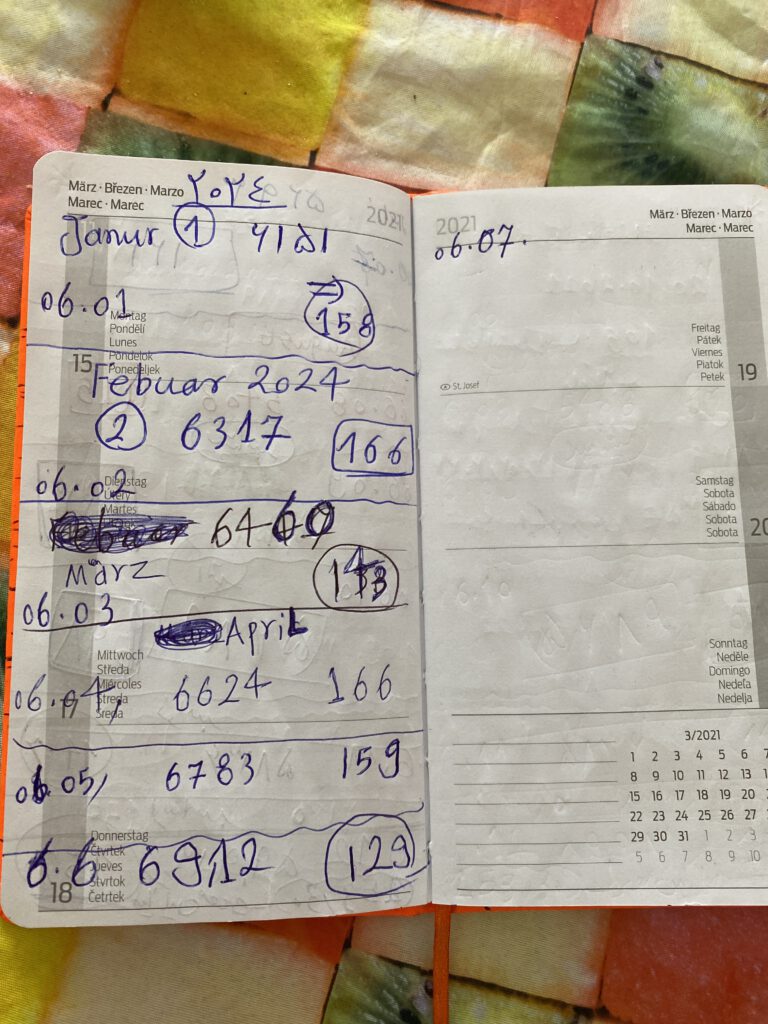 März · Březen · Marzo ٢٠٢٤
Marec · Marec 2021
Janur 1 ٦١٥١
06.01 158
Montag
Pondělí
Lunes
Pondelok
Ponedeljek
15
Febuar 2024
2 6317 166
06.02
Dienstag
Martes
6460
März 143
06.03
April
Mittwoch
Středa
Miércoles
Streda
Sreda
17
06.04, 6624 166
06.05, 6783 159
Donnerstag
Čtvrtek
Jueves
Štvrtok
Četrtek
18
6.6 6912 129
2021 März · Březen · Marzo
Marec · Marec
06.07.
Freitag
Pátek
Viernes
Piatok
Petek
19
St. Josef
Samstag
Sobota
Sábado
Sobota
Sobota
20
Sonntag
Neděle
Domingo
Nedeľa
Nedelja
3/2021
1 2 3 4 5 6 7
8 9 10 11 12 13 1
15 16 17 18 19 20
22 23 24 25 26 27
29 30 31 1 2 3
5 6 7 8 9 10